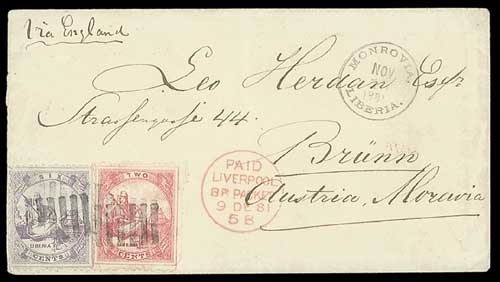 Via England
MONROVIA.
NOV
1881
LIBERIA.
Leo Herdan Esqr
Strassengasse 44.
Brünn
Austria, Moravia
PAID
LIVERPOOL
BR PACKET
9 DE 81
5 B
SIX
LIBERIA
CENTS
TWO
CENTS